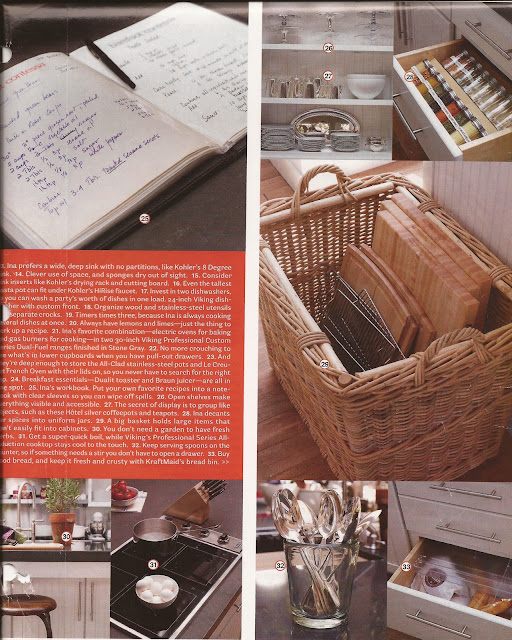 contessa
26
27
28
25
. Ina prefers a wide, deep sink with no partitions, like Kohler's 8 Degree
nk. 14. Clever use of space, and sponges dry out of sight. 15. Consider
nk inserts like Kohler's drying rack and cutting board. 16. Even the tallest
asta pot can fit under Kohler's HiRise faucet. 17. Invest in two dishwashers,
you can wash a party's worth of dishes in one load. 24-inch Viking dish-
sher with custom front. 18. Organize wood and stainless-steel utensils
separate crocks. 19. Timers times three, because Ina is always cooking
veral dishes at once. 20. Always have lemons and limes—just the thing to
erk up a recipe. 21. Ina's favorite combination—electric ovens for baking
nd gas burners for cooking—in two 30-inch Viking Professional Custom
eries Dual-Fuel ranges finished in Stone Gray. 22. No more crouching to
ee what's in lower cupboards when you have pull-out drawers. 23. And
ey're deep enough to store the All-Clad stainless-steel pots and Le Creu-
et French Oven with their lids on, so you never have to search for the right
p. 24. Breakfast essentials—Dualit toaster and Braun juicer—are all in
ne spot. 25. Ina's workbook. Put your own favorite recipes into a note-
ook with clear sleeves so you can wipe off spills. 26. Open shelves make
verything visible and accessible. 27. The secret of display is to group like
bjects, such as these Hôtel silver coffeepots and teapots. 28. Ina decants
er spices into uniform jars. 29. A big basket holds large items that
on't easily fit into cabinets. 30. You don't need a garden to have fresh
erbs. 31. Get a super-quick boil, while Viking's Professional Series All-
duction cooktop stays cool to the touch. 32. Keep serving spoons on the
unter, so if something needs a stir you don't have to open a drawer. 33. Buy
ood bread, and keep it fresh and crusty with KraftMaid's bread bin. >>
29
30
31
32
33